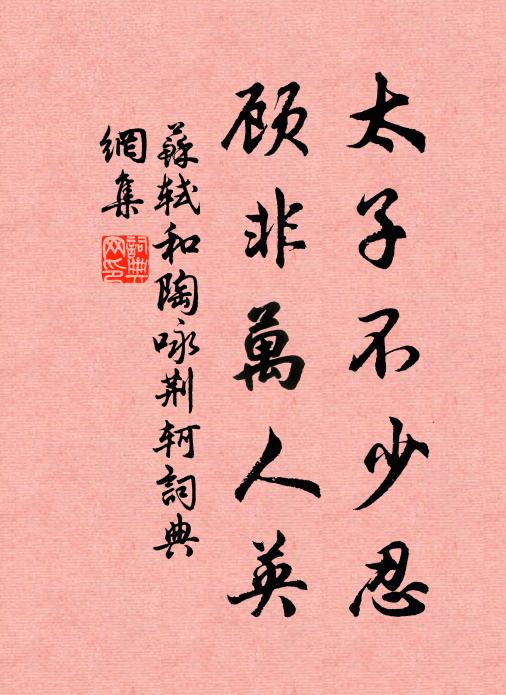 太子不少忍
顾非萬人英
蘇轼和陶咏荆轲詞典
網集
詞典
网印